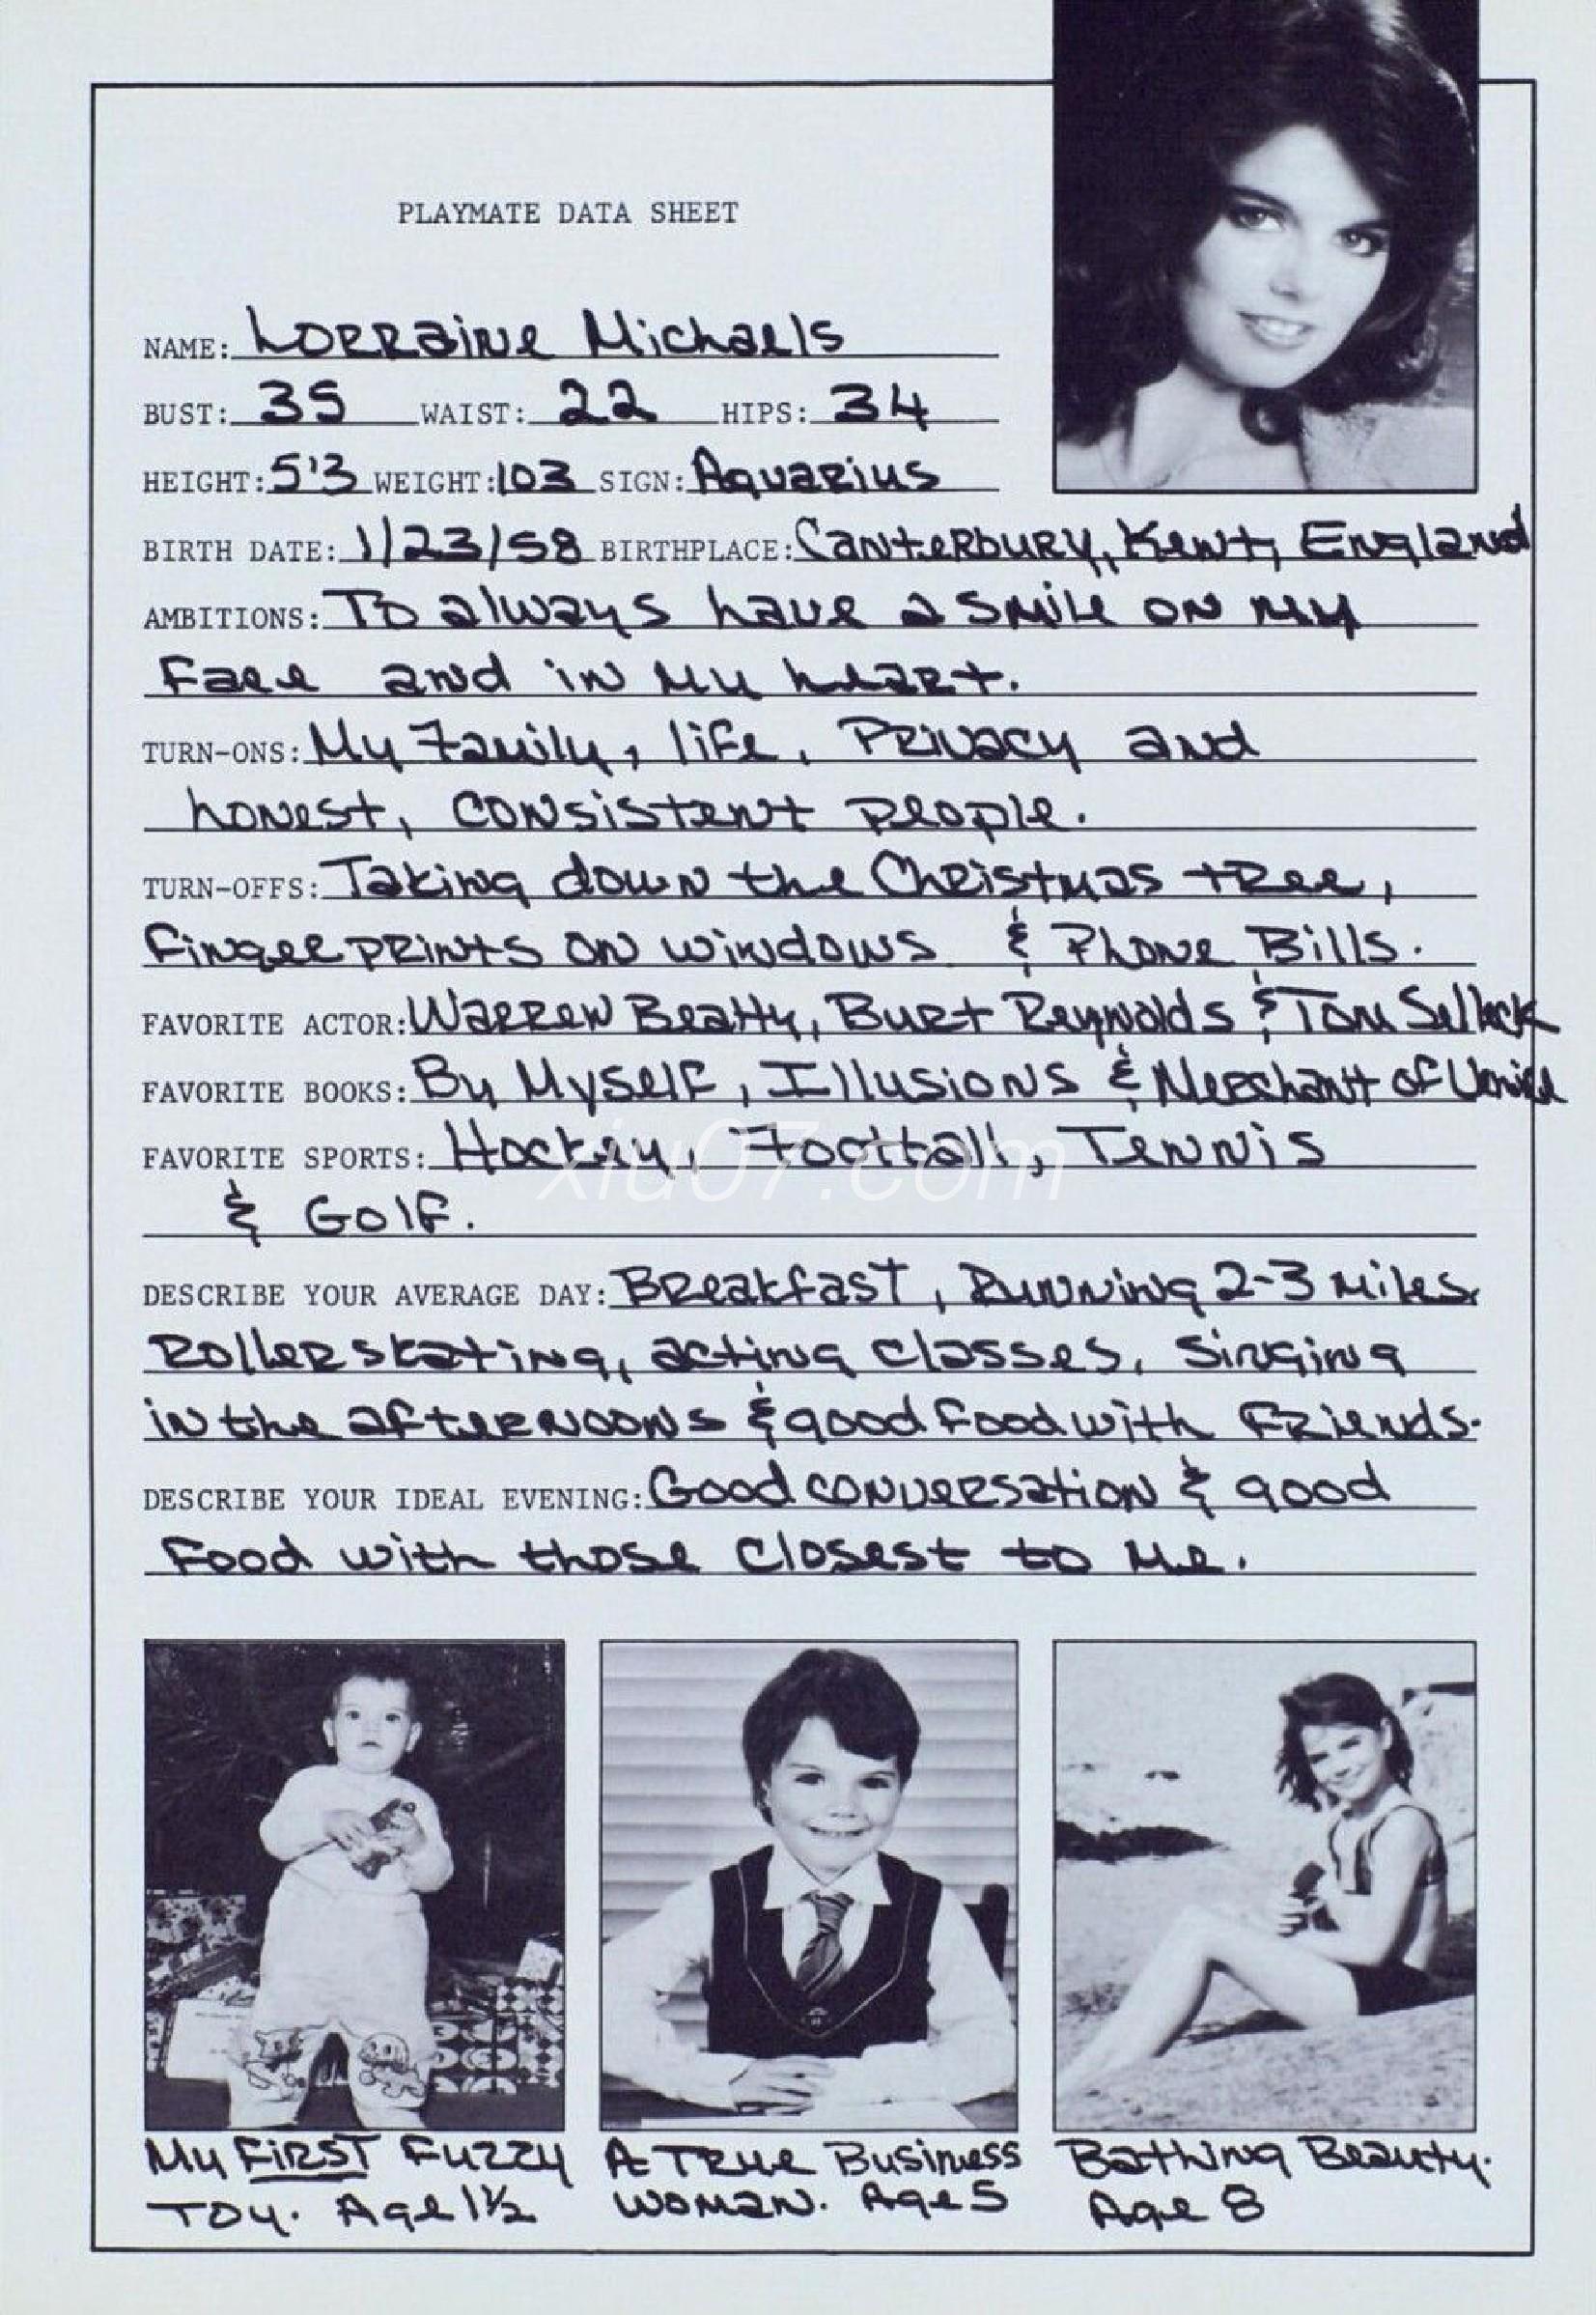 PLAYMATE DATA SHEET
NAME: Lorraine Michaels
BUST: 35 WAIST: 22 HIPS: 34
HEIGHT: 5'3 WEIGHT: 103 SIGN: Aquarius
BIRTH DATE: 1/23/58 BIRTHPLACE: Canterbury, Kent, England
AMBITIONS: To always have a smile on my
face and in my heart.
TURN-ONS: My Family, life, Privacy and
honest, consistent people.
TURN-OFFS: Taking down the Christmas tree,
fingerprints on windows & Phone Bills.
FAVORITE ACTOR: Warren Beatty, Burt Reynolds & Tom Selleck
FAVORITE BOOKS: By Myself, Illusions & Merchant of Venice
FAVORITE SPORTS: Hockey, Football, Tennis
xiu07.com
& Golf.
DESCRIBE YOUR AVERAGE DAY: Breakfast, Running 2-3 miles.
Rollerskating, acting classes, singing
in the afternoons & good food with friends.
DESCRIBE YOUR IDEAL EVENING: Good conversation & good
food with those closest to me.
My First Fuzzy
Toy. Age 1½
A True Business
Woman. Age 5
Bathing Beauty.
Age 8